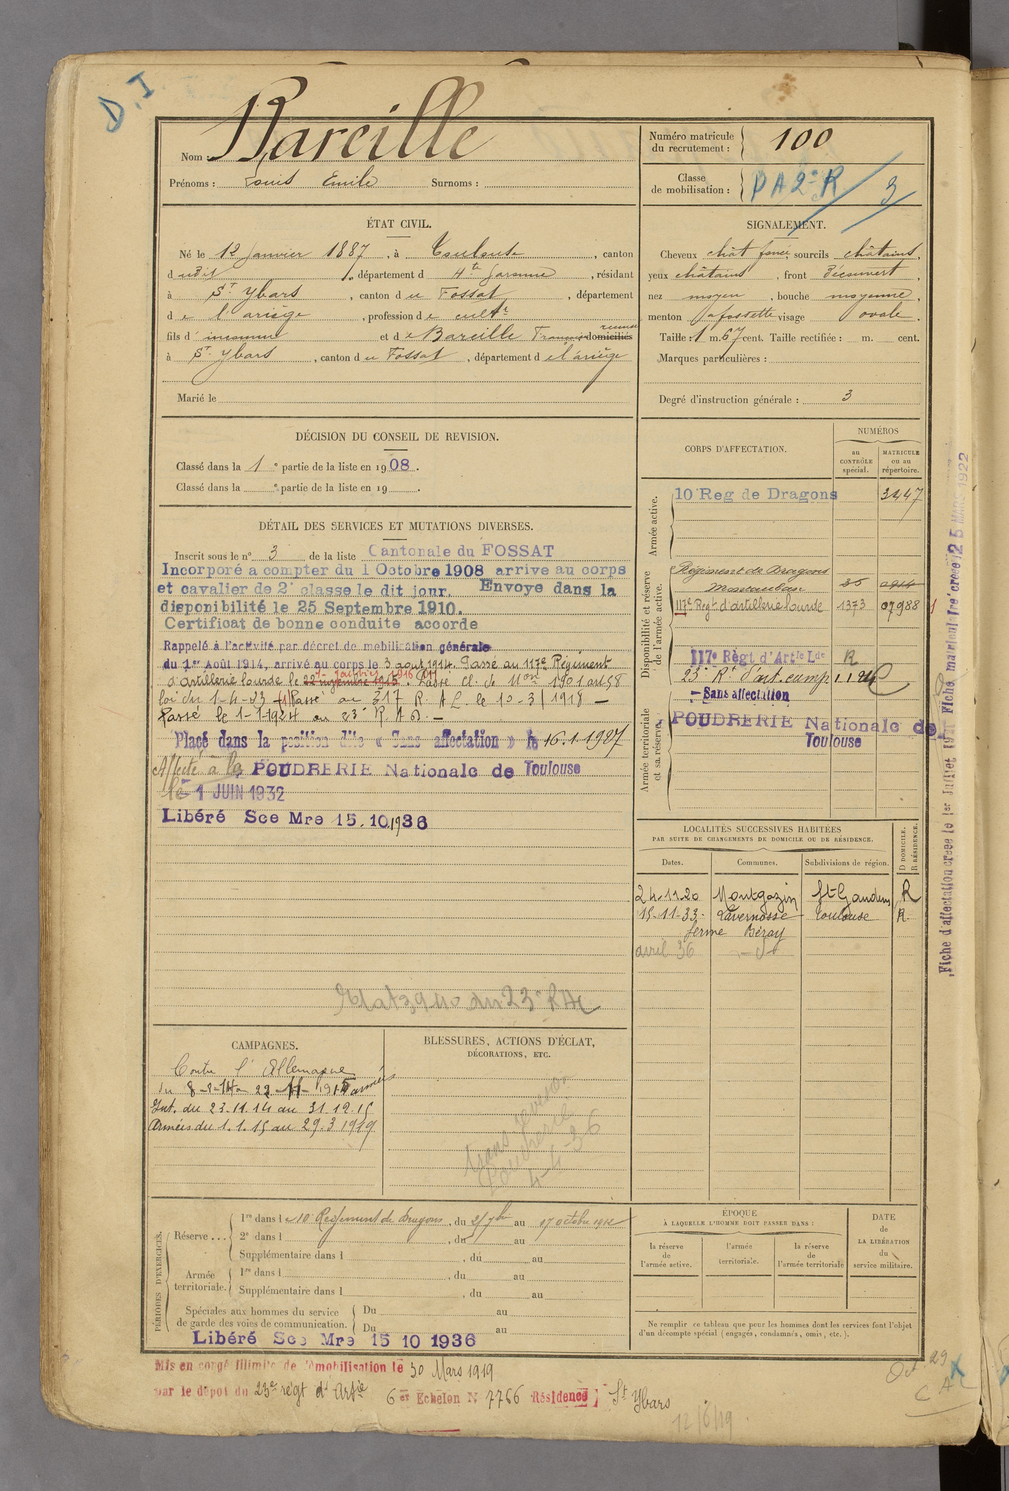 D.I
Nom : Bareille
Prénoms : Louis Emile Surnoms :
Numéro matricule du recrutement : 100
Classe de mobilisation : PA 2e R / 3
ÉTAT CIVIL.
Né le 12 Janvier 1887, à Toulouse, canton
dudit, département d Hte Garonne, résidant
à St Ybars, canton du Fossat, département
de l'ariège, profession de cultr
fils d'inconnu et de Bareille domiciliés
à St Ybars, canton du Fossat, département de l'ariège
Marié le
SIGNALEMENT.
Cheveux chât foncé sourcils châtains,
yeux châtains, front Découvert,
nez moyen, bouche moyenne,
menton à fossette visage ovale.
Taille : 1 m. 67 cent. Taille rectifiée : m. cent.
Marques particulières :
Degré d'instruction générale : 3
DÉCISION DU CONSEIL DE REVISION.
Classé dans la 1e partie de la liste en 1908.
Classé dans la e partie de la liste en 19 .
DÉTAIL DES SERVICES ET MUTATIONS DIVERSES.
Inscrit sous le n° 3 de la liste Cantonale du FOSSAT
Incorporé a compter du 1 Octobre 1908 arrive au corps
et cavalier de 2e classe le dit jour. Envoye dans la
disponibilité le 25 Septembre 1910.
Certificat de bonne conduite accorde
Rappelé à l'activité par décret de mobilisation générale
du 1er Août 1914, arrivé au corps le 3 aout 1914. Passé au 117e Régiment
d'artillerie lourde le 1er janvier 1916 Passé cl. de Mon 1901 art 58
loi du 1-4-23 Passé au 317 R. A L. le 10-3-1918 –
Passé le 1-1-1924 au 23e R. A D. –
Placé dans la position dite « Sans affectation » le 16.1.1927
Affecté à la POUDRERIE Nationale de Toulouse
le 1 JUIN 1932
Libéré Sce Mre 15.10.1936
CORPS D'AFFECTATION.
NUMÉROS
au CONTRÔLE spécial.
MATRICULE ou au répertoire.
Armée active.
10e Reg de Dragons 3447
Disponibilité et réserve de l'armée active.
Régiment de Dragons
Montauban 36
117e Regt d'artillerie lourde 1373 07988
117e Règt d'Artie Lde R
23e Rt d'art. camp 1.1.24
– Sans affectation
Armée territoriale et sa réserve.
POUDRERIE Nationale de
Toulouse
Fiche d'affectation créée le 1er Juillet
Fiche matriculaire créée 25 MARS 1922
LOCALITÉS SUCCESSIVES HABITÉES
PAR SUITE DE CHANGEMENTS DE DOMICILE OU DE RÉSIDENCE.
Dates. Communes. Subdivisions de région. D DOMICILE. R RÉSIDENCE.
24.11.20 Montgazin St-Gaudens R
15-11-33- Lavernosse Toulouse R.
ferme Béray
avril 36
CAMPAGNES.
Contre l'Allemagne
Int. du 23.11.14 au 31.12.15
Armées du 1.1.15 au 29.3.1919
BLESSURES, ACTIONS D'ÉCLAT,
DÉCORATIONS, ETC.
4-4-36
PÉRIODES D'EXERCICES.
Réserve... 1re dans le 10e Régiment de Dragons, du 2/7bre au 17 octobre 1912
2e dans l , du au
Supplémentaire dans l , du au
Armée territoriale. 1re dans l , du au
Supplémentaire dans l , du au
Spéciales aux hommes du service de garde des voies de communication. Du au
Du au
Libéré Sce Mre 15 10 1936
ÉPOQUE
À LAQUELLE L'HOMME DOIT PASSER DANS :
la réserve de l'armée active.
l'armée territoriale.
la réserve de l'armée territoriale
DATE de LA LIBÉRATION du service militaire.
Ne remplir ce tableau que pour les hommes dont les services font l'objet
d'un décompte spécial (engagés, condamnés, omis, etc.).
Mis en congé illimité de démobilisation le 30 Mars 1919
par le dépot du 23e règt d'Artie 6e Echelon N° 7766 Résidence St Ybars
12/6/19.
Oct. 29